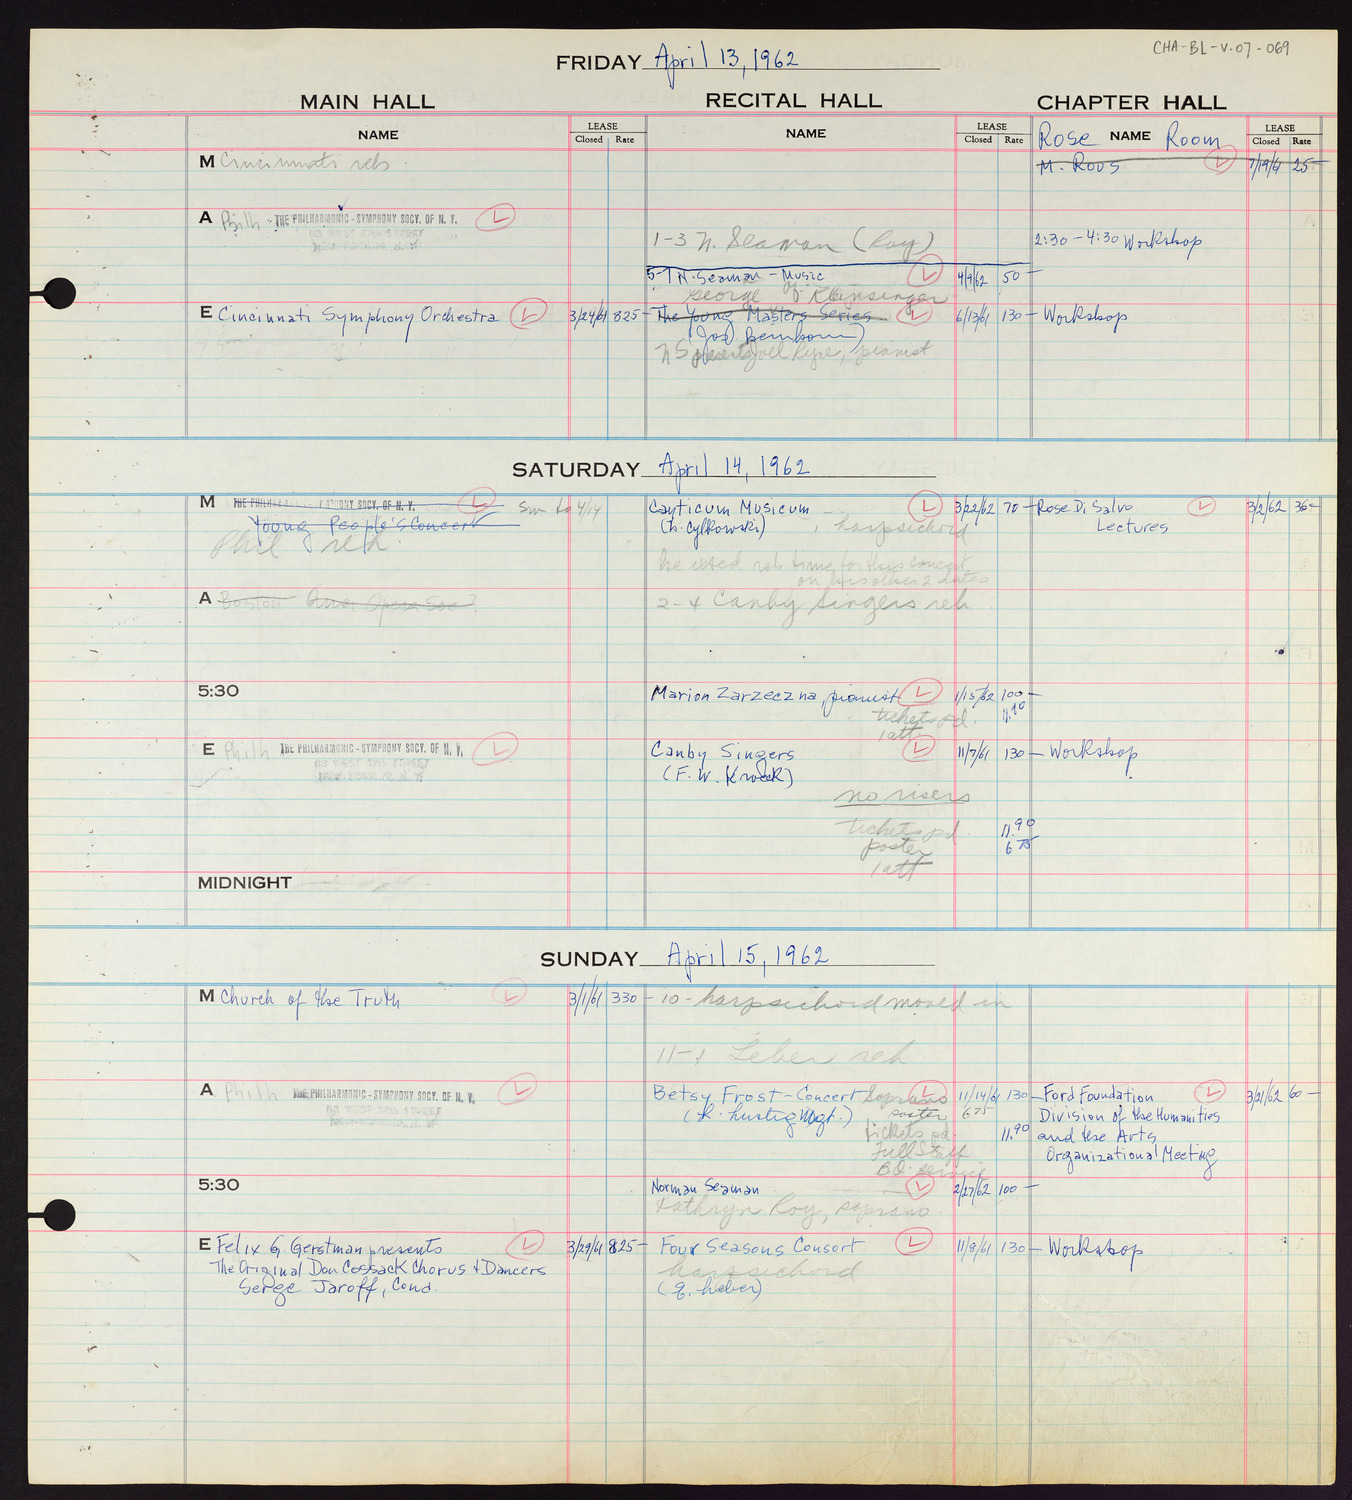 CHA-BL-V.07-069
FRIDAY April 13, 1962
MAIN HALL RECITAL HALL CHAPTER HALL
NAME LEASE Closed Rate NAME LEASE Closed Rate Rose NAME Room LEASE Closed Rate
M Cincinnati reh
M. Rous L 7/19/61 25-
A Philh THE PHILHARMONIC-SYMPHONY SOCY. OF N. Y. L
1-3 N. Seaman (Roy)
2:30-4:30 Workshop
5-7 N. Seaman - Music L 4/9/62 50-
George Kleinsinger
E Cincinnati Symphony Orchestra L 3/24/61 825-
The Young Masters Series L 6/13/61 130-
Workshop
NS presents Joel Ryce, pianist
SATURDAY April 14, 1962
M THE PHILHARMONIC-SYMPHONY SOCY. OF N. Y. L Sw to 4/14
Young People's Concert
Phil reh
Canticum Musicum L 3/22/62 70-
(Th. Cylkowski) harpsichord
he used reh time for this concert
on his other 2 dates
Rose Di Salvo L 3/2/62 35-
Lectures
A Boston Opera Soc?
2-4 Canby Singers reh
5:30
Marion Zarzeczna, pianist L 1/15/62 100-
tickets pd. 11.90
1 att
E Philh THE PHILHARMONIC-SYMPHONY SOCY. OF N. Y. L
Canby Singers L 11/7/61 130-
(F. W. Kroek)
no risers
tickets pd. 11.90
poster 6 75
1 att
Workshop
MIDNIGHT
SUNDAY April 15, 1962
M Church of the Truth L 3/1/61 330-
10-harpsichord moved in
11-1 Leber reh
A Philh THE PHILHARMONIC-SYMPHONY SOCY. OF N. Y. L
Betsy Frost-Concert Soprano L 11/14/61 130-
(L. Lustig Mgt.) poster 6 75
tickets pd. 11.90
Full Staff
B.O. service
Ford Foundation L 3/21/62 60-
Division of the Humanities
and the Arts
Organizational Meeting
5:30
Norman Seaman L 2/27/62 100-
Kathryn Roy, soprano
E Felix G. Gerstman presents L 3/29/61 825-
The Original Don Cossack Chorus + Dancers
Serge Jaroff, Cond.
Four Seasons Consort L 11/8/61 130-
harpsichord
(g. leber)
Workshop